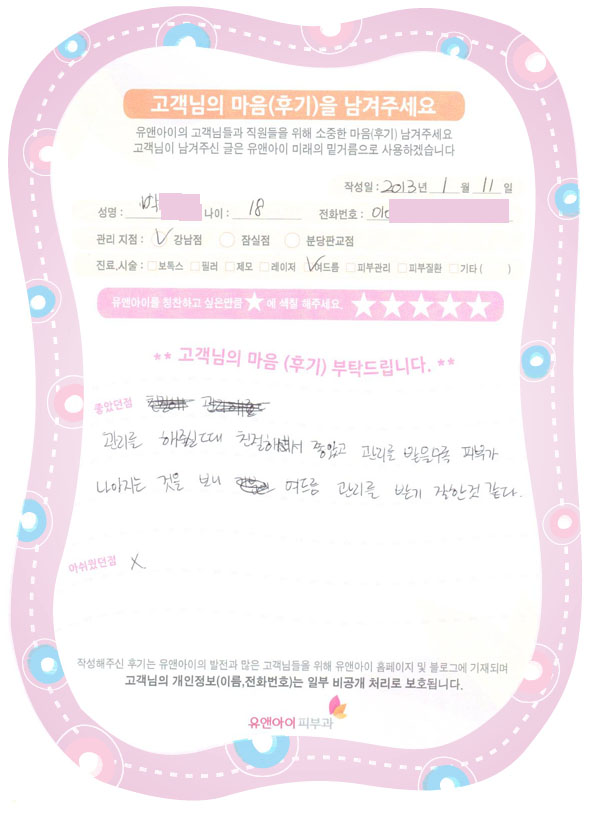 고객님의 마음(후기)을 남겨주세요
유앤아이의 고객님들과 직원들을 위해 소중한 마음(후기) 남겨주세요
고객님이 남겨주신 글은 유앤아이 미래의 밑거름으로 사용하겠습니다
작성일 : 2013 년 1 월 11 일
성명 : 박 나이 : 18 전화번호 : 010
관리 지점 : 강남점 잠실점 분당판교점
진료,시술 : 보톡스 필러 제모 레이저 여드름 피부관리 피부질환 기타 ( )
유앤아이를 칭찬하고 싶은만큼 ★ 에 색칠 해주세요. ★★★★★
** 고객님의 마음 (후기) 부탁드립니다. **
좋았던점
관리를 해주실때 친절해서 좋았고 관리를 받을수록 피부가
나아지는 것을 보니 여드름 관리를 받기 잘한것 같다.
아쉬웠던점 X.
작성해주신 후기는 유앤아이의 발전과 많은 고객님들을 위해 유앤아이 홈페이지 및 블로그에 기재되며
고객님의 개인정보(이름,전화번호)는 일부 비공개 처리로 보호됩니다.
유앤아이피부과